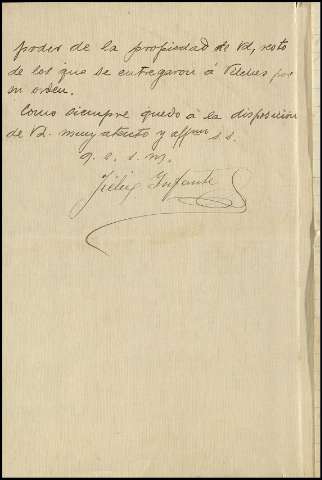 poder de la propiedad de Vd, resto
de los que se entregaron á Vilches por
su orden.
Como siempre quedo á la disposición
de Vd. muy atento y affmo s. s.
q. e. s. m.
Félix Infante